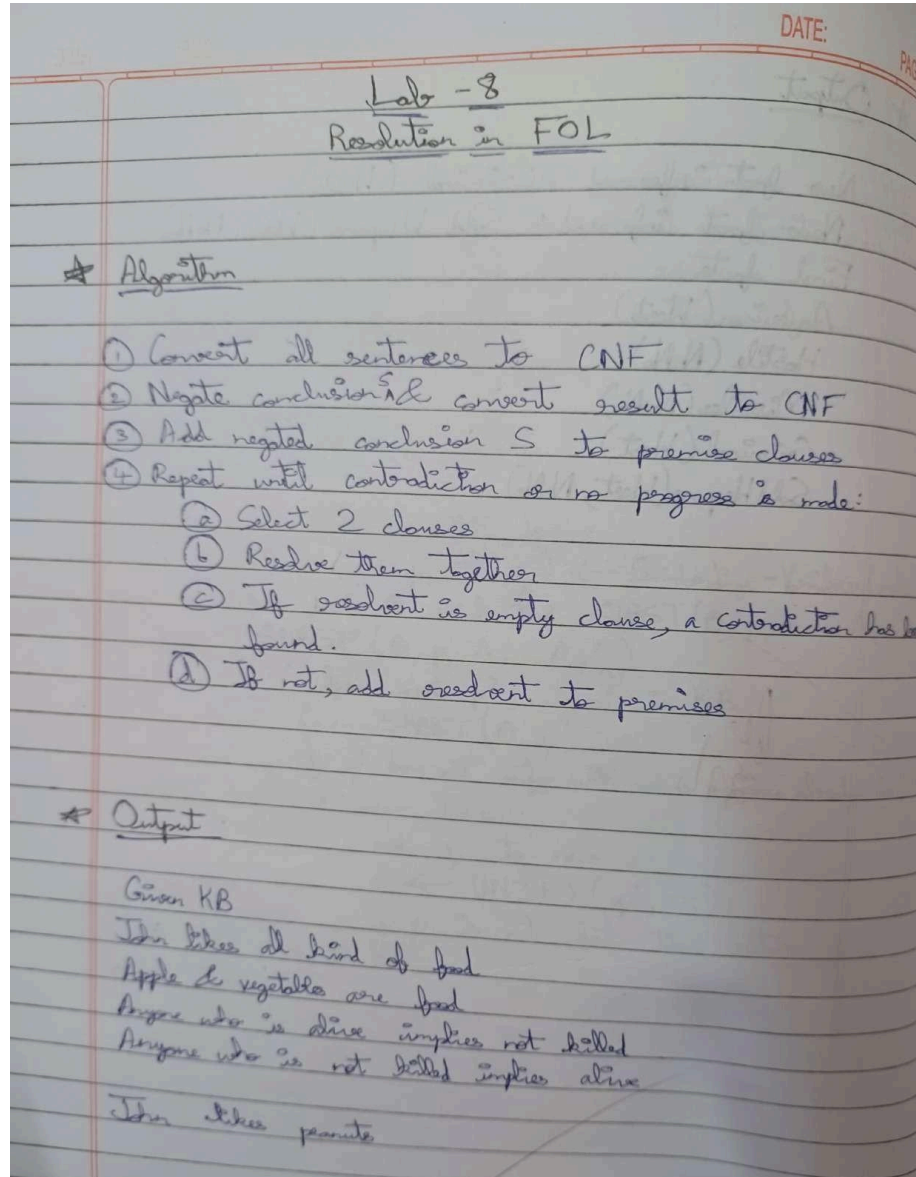 DATE:
PAG
Lab - 8
Resolution in FOL
Algorithm
① Convert all sentences to CNF
② Negate conclusion S & convert result to CNF
③ Add negated conclusion S to premise clauses
④ Repeat until contradiction or no progress is made:
ⓐ Select 2 clauses
ⓑ Resolve them together
ⓒ If resolvent is empty clause, a contradiction has
found.
ⓓ If not, add resolvent to premises
Output
Given KB
John likes all kind of food
Apple & vegetables are food
Anyone who is alive implies not killed
Anyone who is not killed implies alive
John likes peanuts